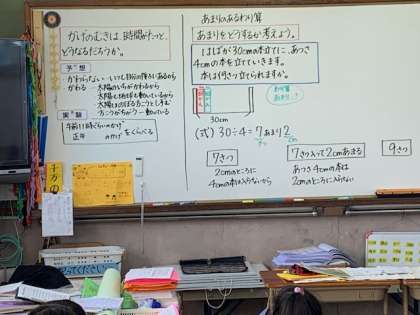 かげのむきは、時間がたつと、
どうなるだろうか。
予想
・かわらない…
・かわる…太陽のいちがかわるから
実験
午前11時ぐらいのかげ
正午 のかげ
をくらべる
あまりのあるわり算
あまりをどうするか考えよう。
はばが30cmの本立てに、あつさ
4cmの本を立てていきます。
本は何さつ立てられますか。
わり算
あまり
30cm
(式) 30÷4=7あまり2
さつ cm
7さつ
2cmのところに
4cmの本は入らないから
7さつ入って2cmあまる
あつさ4cmの本は
2cmのところに入らない
9さつ
てください